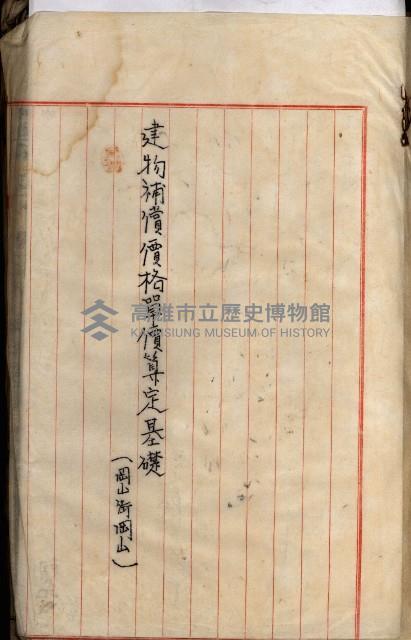 建物補償價格單價算定基礎
(岡山街岡山)
高雄市立歷史博物館
KAOHSIUNG MUSEUM OF HISTORY